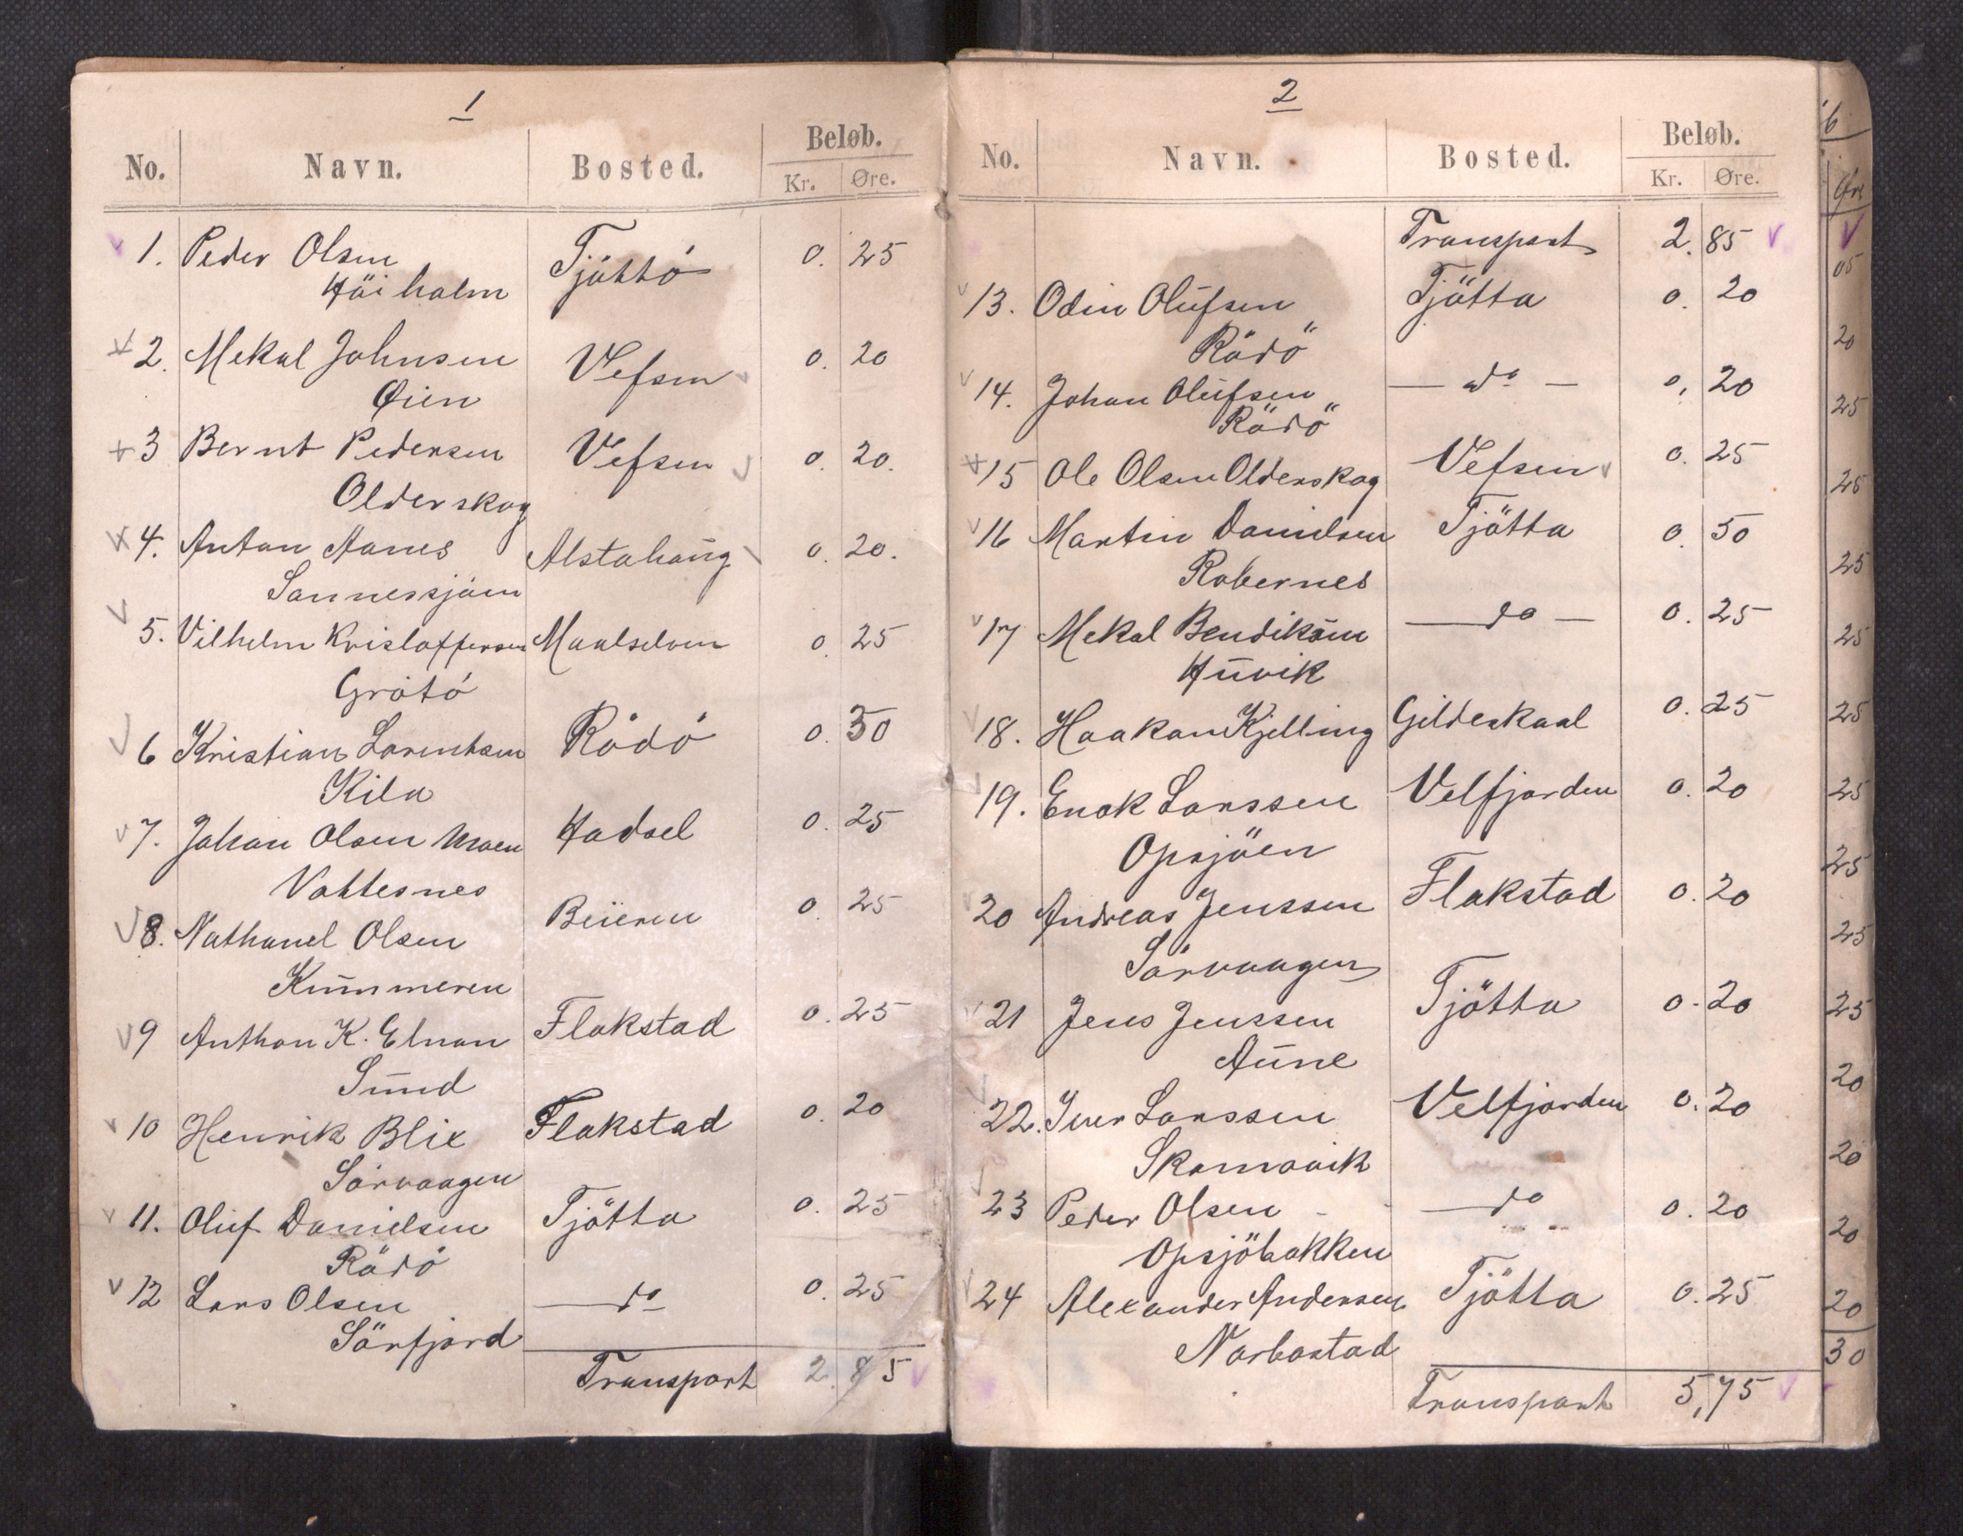 1
No. Navn. Bosted. Beløb.
Kr. Øre.
1. Peder Olsen Tjöttö 0. 25
Höiholm
2. Mekal Johnsen Vefsen 0. 20
Øien
3 Bernt Pedersen Vefsen 0. 20.
Olderskog
4. Anton Aanes Alstahaug 0. 20.
Sannessjöen
5. Vilhelm Kristoffersen Maalselven 0. 25
Grötö
6 Kristian Lorentsen Rödö 0. 30
Kila
7. Johan Olsen Moen Hadsel 0. 25
Vottesnes
8. Nathanel Olsen Beieren 0. 25
Kummeren
9 Anthon K. Elnan Flakstad 0. 25
Sund
10 Henrik Blix Flakstad 0. 20
Sörvaagen
11. Oluf Danielsen Tjötta 0. 25
Rödö
12 Lars Olsen — do 0. 25
Sörfjord
Transport 2. 85
2
No. Navn. Bosted. Beløb.
Kr. Øre.
Transport 2. 85
13. Odin Olufsen Tjötta 0. 20
Rödö
14. Johan Olufsen — do — 0, 20
Rödö
15 Ole Olsen Olderskog Vefsen 0. 25
16 Martin Danielsen Tjötta 0. 50
Robernes
17 Mekal Bendiksen — do — 0. 25
Husvik
18. Haakon Kjelling Gildeskaal 0. 25
19. Enok Larssen Velfjorden 0. 20
Opsjöen
20 Andreas Jenssen Flakstad 0. 20
Sörvaagen
21 Jens Jenssen Tjötta 0. 20
Aune
22. Iver Larssen Velfjorden 0. 20
Skomovik
23 Peder Olsen — do 0. 20
Opsjöbakken
24 Alexander Andersen Tjötta 0. 25
Norbostad
Transport 5,75
6
Øre
05
20
25
25
25
25
25
25
25
25
25
20
20
20
20
30